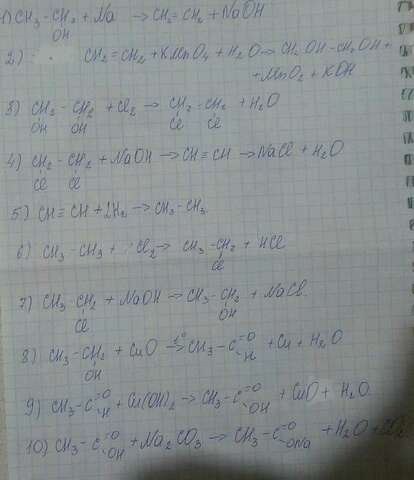 1) CH3-CH2 + Na → CH2=CH2 + NaOH
OH
2) CH2=CH2 + KMnO4 + H2O → CH2OH-CH2OH +
+ MnO2 + KOH
3) CH2-CH2 + Cl2 → CH2=CH2 + H2O
OH OH Cl Cl
4) CH2-CH2 + NaOH → CH≡CH → NaCl + H2O
Cl Cl
5) CH≡CH + 2H2 → CH3-CH3
6) CH3-CH3 + Cl2 → CH3-CH2 + HCl
Cl
7) CH3-CH2 + NaOH → CH3-CH2 + NaCl
Cl OH
8) CH3-CH2 + CuO t° → CH3-C=O H + Cu + H2O
OH
9) CH3-C=O H + Cu(OH)2 → CH3-C=O OH + CuO + H2O
10) CH3-C=O OH + Na2CO3 → CH3-C=O ONa + H2O + CO2